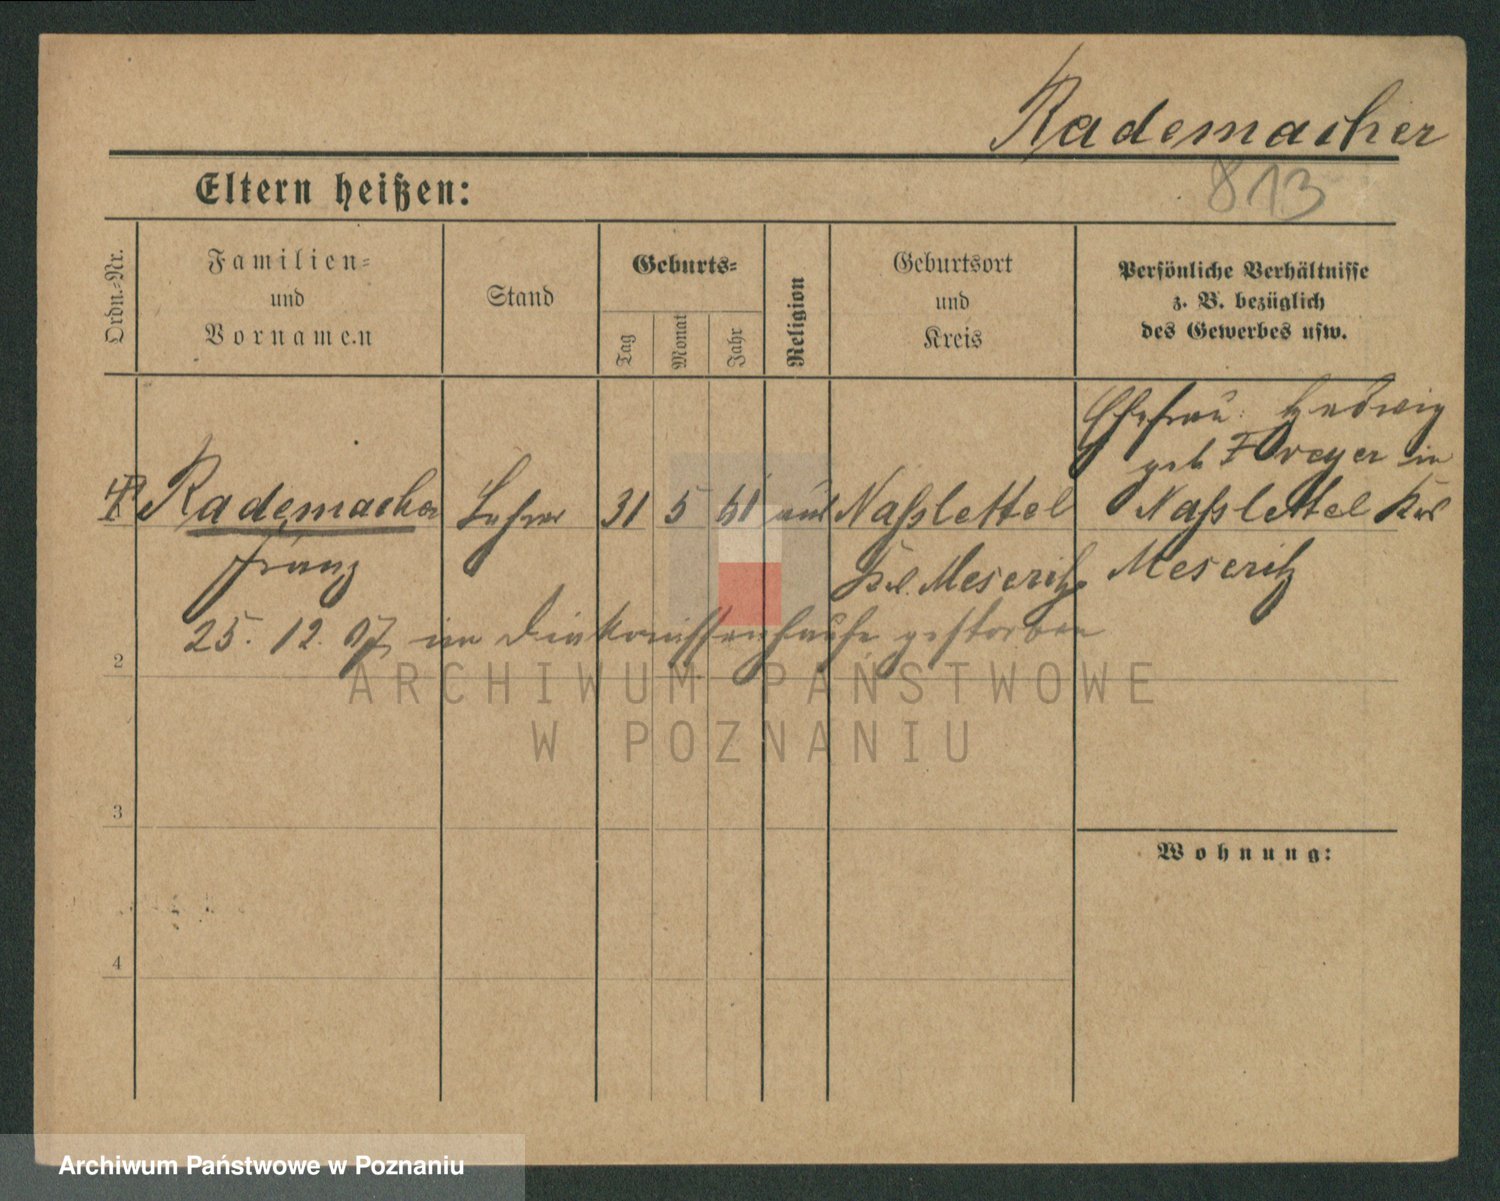 Rademacher
813
Eltern heißen:
Ordn.-Nr.
Familien-
und
Vornamen
Stand
Geburts-
Tag
Monat
Jahr
Religion
Geburtsort
und
Kreis
Persönliche Verhältnisse
z. B. bezüglich
des Gewerbes usw.
Ehefrau: Hedwig
geb in
Rademacher Lehrer 31 5 61 Naßlettel Naßlettel Krs
Franz Krs. Meseritz Meseritz
25. 12. 07 im Diakonissenhause gestorben
2
ARCHIWUM PAŃSTWOWE
W POZNANIU
3
Wohnung:
4
Archiwum Państwowe w Poznaniu